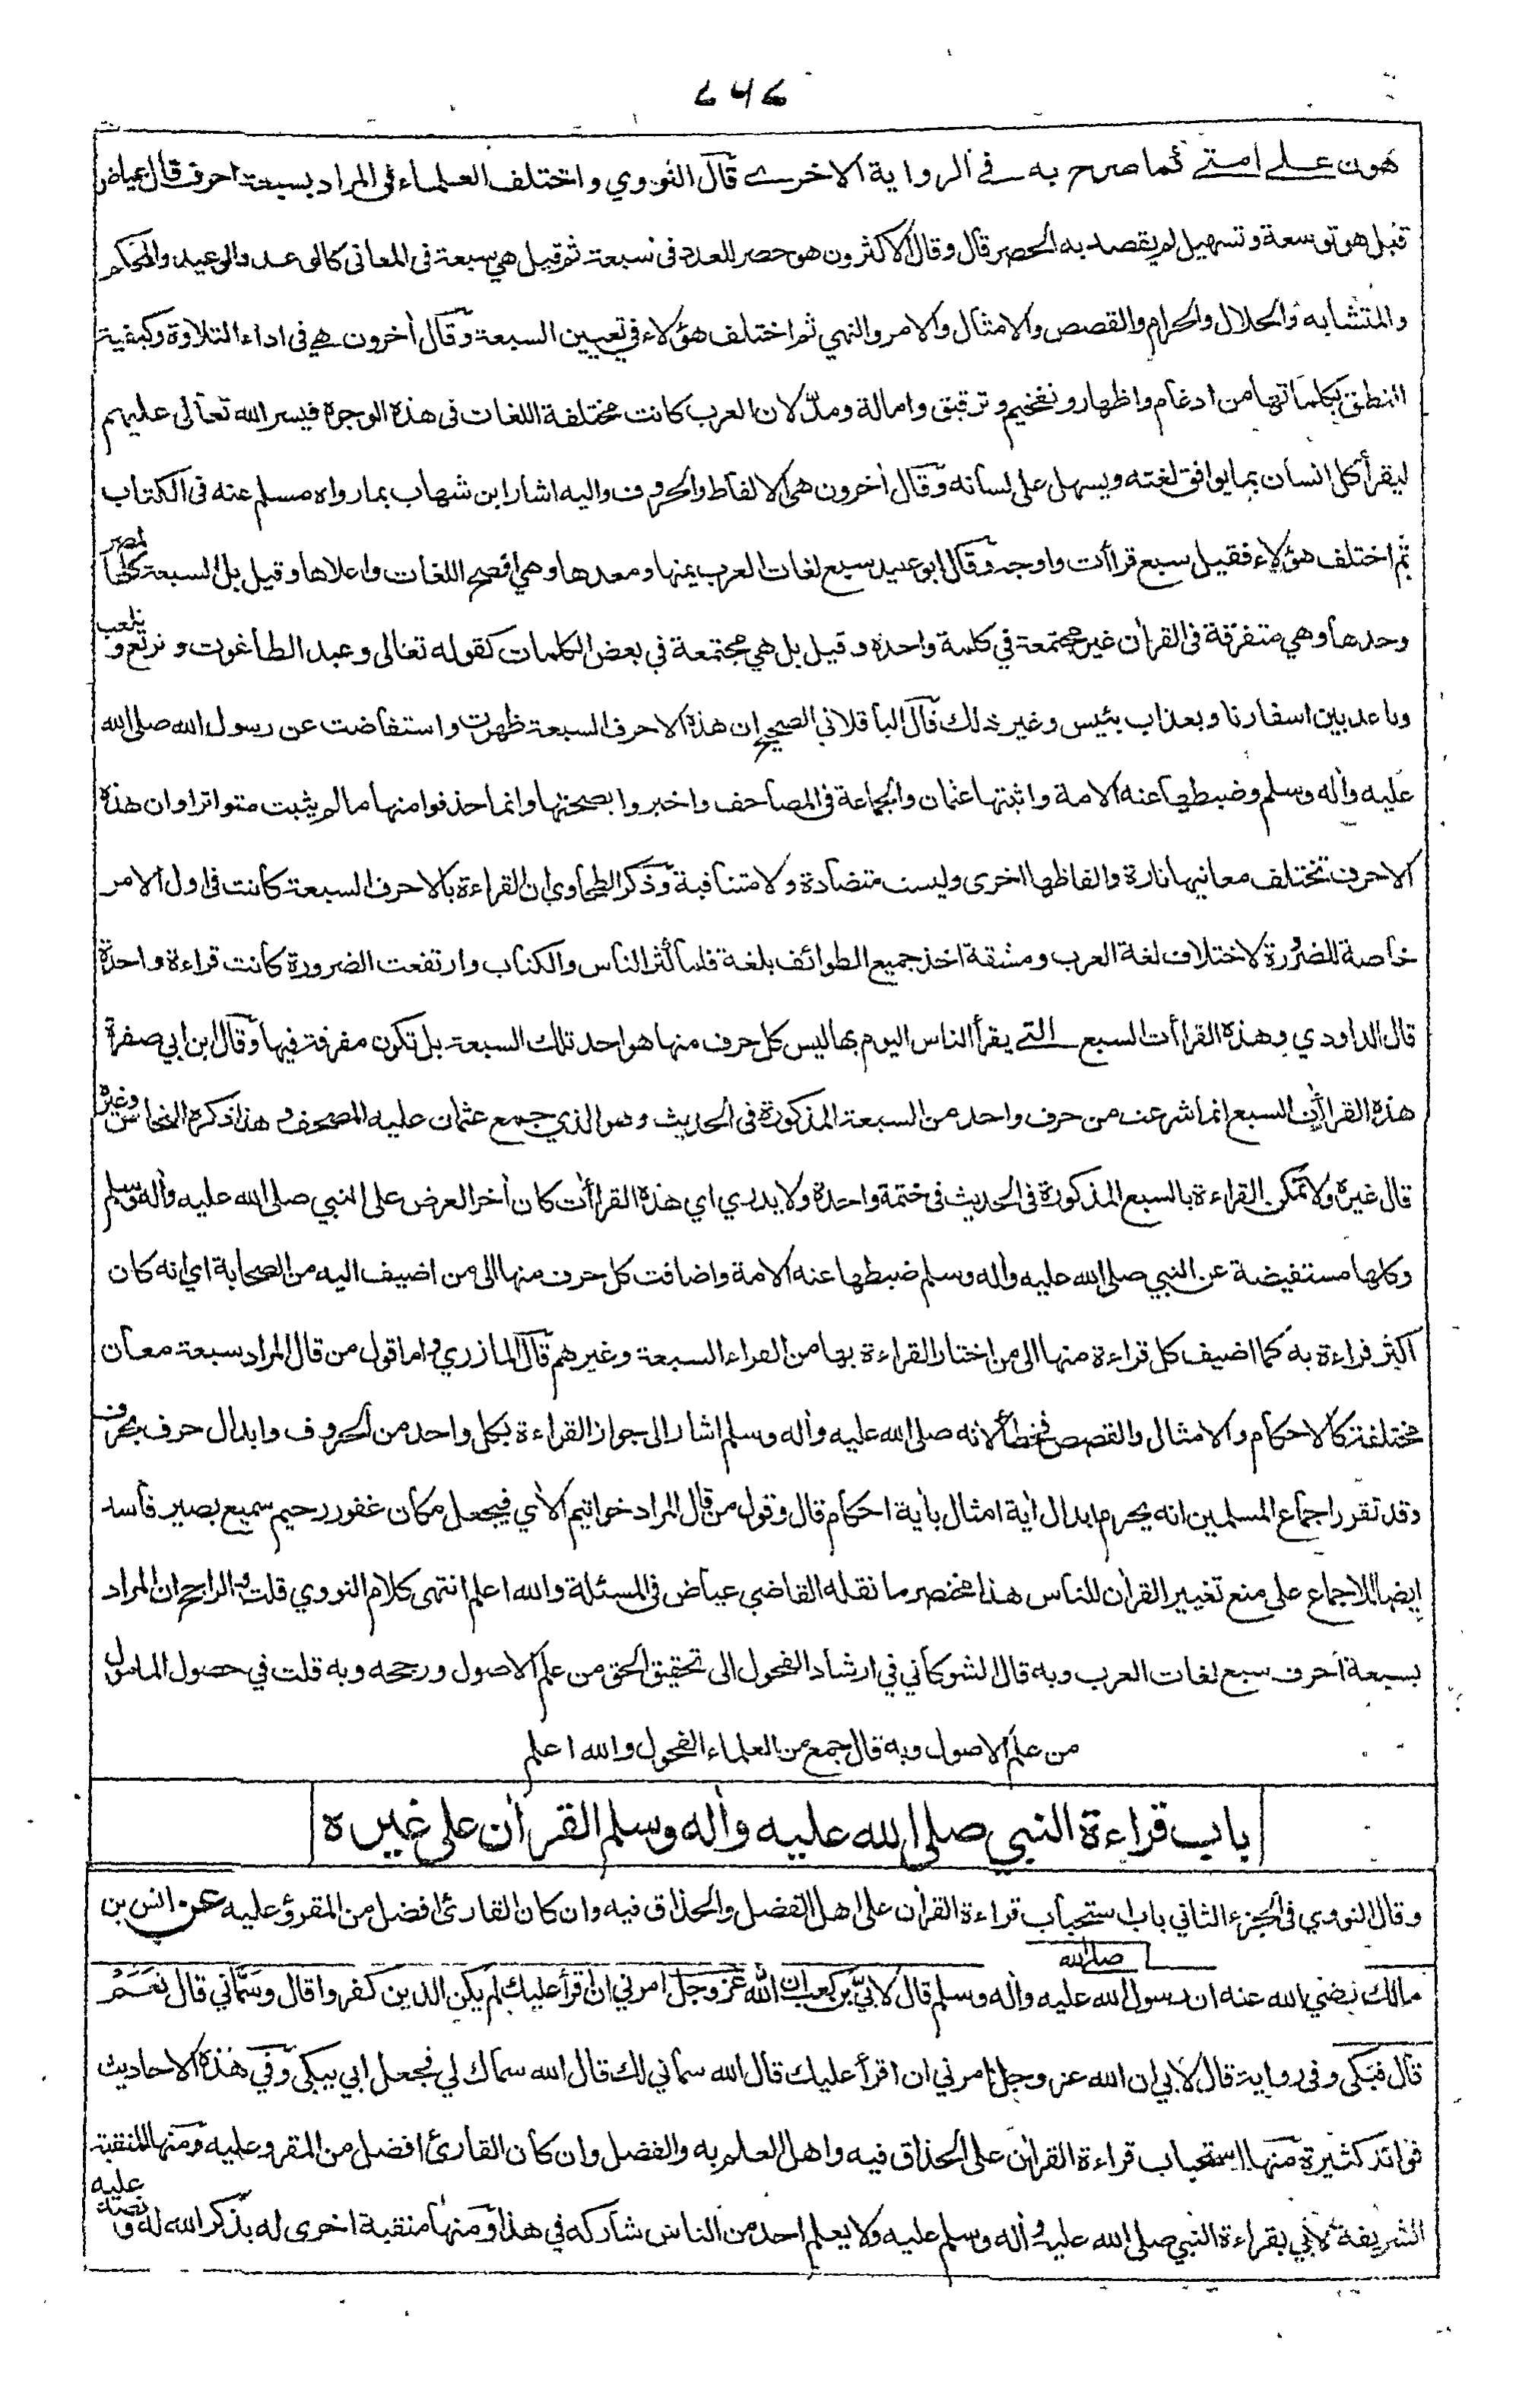 ٤٧٤
هون على امتي كما صرح به في الرواية الاخرى قال النووي واختلف العلماء في المراد بسبعة احرف قال عياض
قيل هو توسعة وتسهيل لم يقصد به الحصر قال وقال الاكثرون هو حصر للعدد في سبعة ثم قيل هي سبعة في المعاني كالوعد والوعيد والمحكم
والمتشابه والحلال والحرام والقصص والامثال والامر والنهي ثم اختلف هؤلاء في تعيين السبعة وقال أخرون هي في اداء التلاوة وكيفية
النطق بكلماتها من ادغام واظهار وتفخيم وترقيق وامالة ومد لان العرب كانت مختلفة اللغات في هذه الوجوه فيسر الله تعالى عليهم
ليقرأ كل انسان بما يوافق لغته ويسهل على لسانه وقال أخرون هي الالفاظ والحروف واليه اشار ابن شهاب بما رواه مسلم عنه في الكتاب
ثم اختلف هؤلاء فقيل سبع قراأت واوجه وقال ابو عبيد سبع لغات العرب يمنها ومعدها وهي افصح اللغات واعلاها وقيل بل السبعة كلها لمضر
وحدها وهي متفرقة في القرأن غير مجتمعة في كلمة واحدة وقيل بل هي مجتمعة في بعض الكلمات كقوله تعالى وعبد الطاغوت و نرتع و نلعب
وباعد بين اسفارنا وبعذاب بئيس وغير ذلك قال الباقلاني الصحيح ان هذه الاحرف السبعة ظهرت واستفاضت عن رسول الله صلى الله
عليه وأله وسلم وضبطها عنه الامة واثبتها عثمان والجماعة في المصاحف واخبروا بصحتها وانما حذفوا منها ما لم يثبت متواترا وان هذه
الاحرف تختلف معانيها تارة والفاظها اخرى وليست متضادة ولا متنافية وذكر الطحاوي ان القراءة بالاحرف السبعة كانت في اول الامر
خاصة للضرورة لاختلاف لغة العرب ومشقة اخذ جميع الطوائف بلغة فلما كثر الناس والكتاب وارتفعت الضرورة كانت قراءة واحدة
قال الداودي وهذه القراأت السبع التي يقرأ الناس اليوم بها ليس كل حرف منها هو احد تلك السبعة بل تكون مفرقة فيها وقال ابن ابي صفرة
هذه القراأت السبع انما شرعت من حرف واحد من السبعة المذكورة في الحديث وهو الذي جمع عثمان عليه المصحف وهذا ذكره النحاس وغيره
قال غيره ولا تمكن القراءة بالسبع المذكورة في الحديث في ختمة واحدة ولا يدري اي هذه القراأت كان أخر العرض على النبي صلى الله عليه وأله وسلم
وكلها مستفيضة عن النبي صلى الله عليه وأله وسلم ضبطها عنه الامة واضافت كل حرف منها الى من اضيف اليه من الصحابة اي انه كان
اكثر قراءة به كما اضيف كل قراءة منها الى من اختار القراءة بها من القراء السبعة وغيرهم قال المازري واما قول من قال المراد سبعة معان
مختلفة كالاحكام والامثال والقصص فخطأ لانه صلى الله عليه وأله وسلم اشار الى جواز القراءة بكل واحد من الحروف وابدال حرف بحرف
وقد تقرر اجماع المسلمين انه يحرم ابدال أية امثال بأية احكام قال وقول من قال المراد خواتيم الأي فيجعل مكان غفور رحيم سميع بصير فاسد
ايضا للاجماع على منع تغيير القرأن للناس هذا مختصر ما نقله القاضي عياض في المسئلة والله اعلم انتهى كلام النووي قلت والراجح ان المراد
بسبعة احرف سبع لغات العرب وبه قال الشوكاني في ارشاد الفحول الى تحقيق الحق من علم الاصول ورجحه وبه قلت في حصول المامول
من علم الاصول وبه قال جمع من العلماء الفحول والله اعلم
باب قراءة النبي صلى الله عليه وأله وسلم القرأن على غيره
وقال النووي في الجزء الثاني باب استحباب قراءة القرأن على اهل الفضل والحذاق فيه وان كان القارئ افضل من المقرؤ عليه عن انس بن
مالك رضي الله عنه ان رسول الله صلى الله عليه وأله وسلم قال لابي بن كعب ان الله عز وجل امرني ان اقرأ عليك لم يكن الذين كفروا قال وسماني قال نعم
قال فبكى وفي رواية قال لابي ان الله عز وجل امرني ان اقرأ عليك قال الله سماني لك قال الله سماك لي فجعل ابي يبكي وفي هذه الاحاديث
فوائد كثيرة منها استحباب قراءة القرأن على الحذاق فيه واهل العلم به والفضل وان كان القارئ افضل من المقرو عليه ومنها المنقبة
الشريفة لابي بقراءة النبي صلى الله عليه وأله وسلم عليه ولا يعلم احد من الناس شاركه في هذا ومنها منقبة اخرى له بذكر الله له و نصه عليه